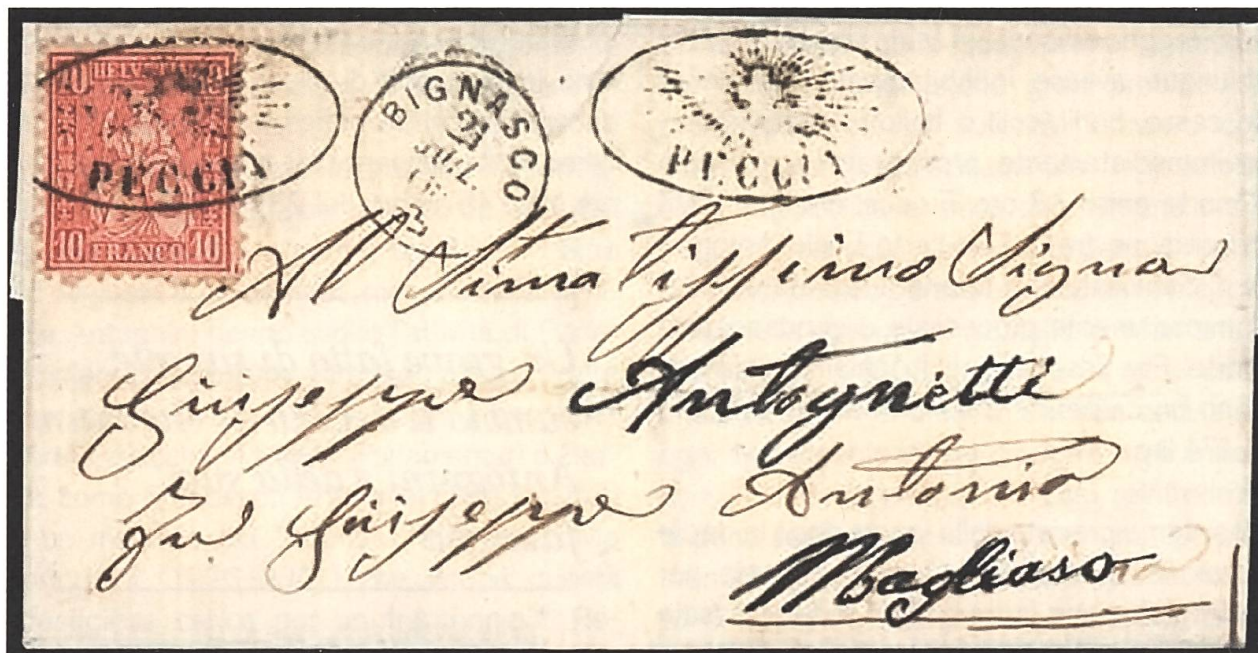 10 HELVETIA 10
PECCIA
10 FRANCO 10
BIGNASCO
23
JUIL
PECCIA
Al Stimatissimo Signor
Giuseppe Antognetti
fu Giuseppe Antonio
Magliaso